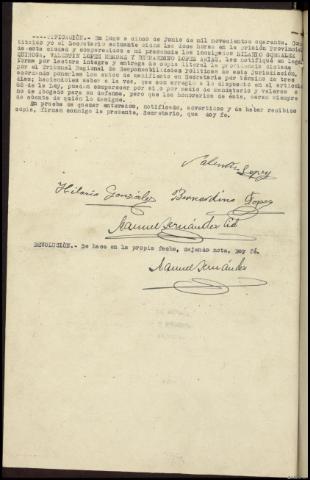 NOTIFICACIÓN.- En Lugo a cinco de junio de mil novecientos cuarenta. Cons-
tituído yo el Secretario actuante sieno las doce horas en la prisión Provincial
de esta ciudad y comparecidos a mi presencia los inculpados HILARIO GONZALEZ
QUIROGA, VALENTIN LOPEZ MENDEZ Y BERNARDINO LOPEZ ARIAS, les notifiqué en legal
forma por lectura íntegra y entrega de copia literal la providencia dictada
por el Tribunal Regional de Responsabilidades Políticas de esta Jurisdicción,
acordando ponerles los autos de manifiesto en Secretaría por término de tres
días; haciendoles saber a la vez, que con arreglo a lo dispuesto en el artículo
de la Ley, pueden comparecer por sí o por medio de mandatario y valerse o
no de abogado para su defensa, pero que los honorarios de éste, serán siempre
de cuenta de quién lo designe.
En prueba de quedar enterados, notificados, advertidos y de haber recibido
copia, firman conmigo la presente, Secretario, que doy fe.
Valentín Lopez
Hilario González Bernardino Lopez
Manuel Fernández Cid
DEVOLUCIÓN.- Se hace en la propia fecha, dejando nota, doy fé.
Manuel Fernández